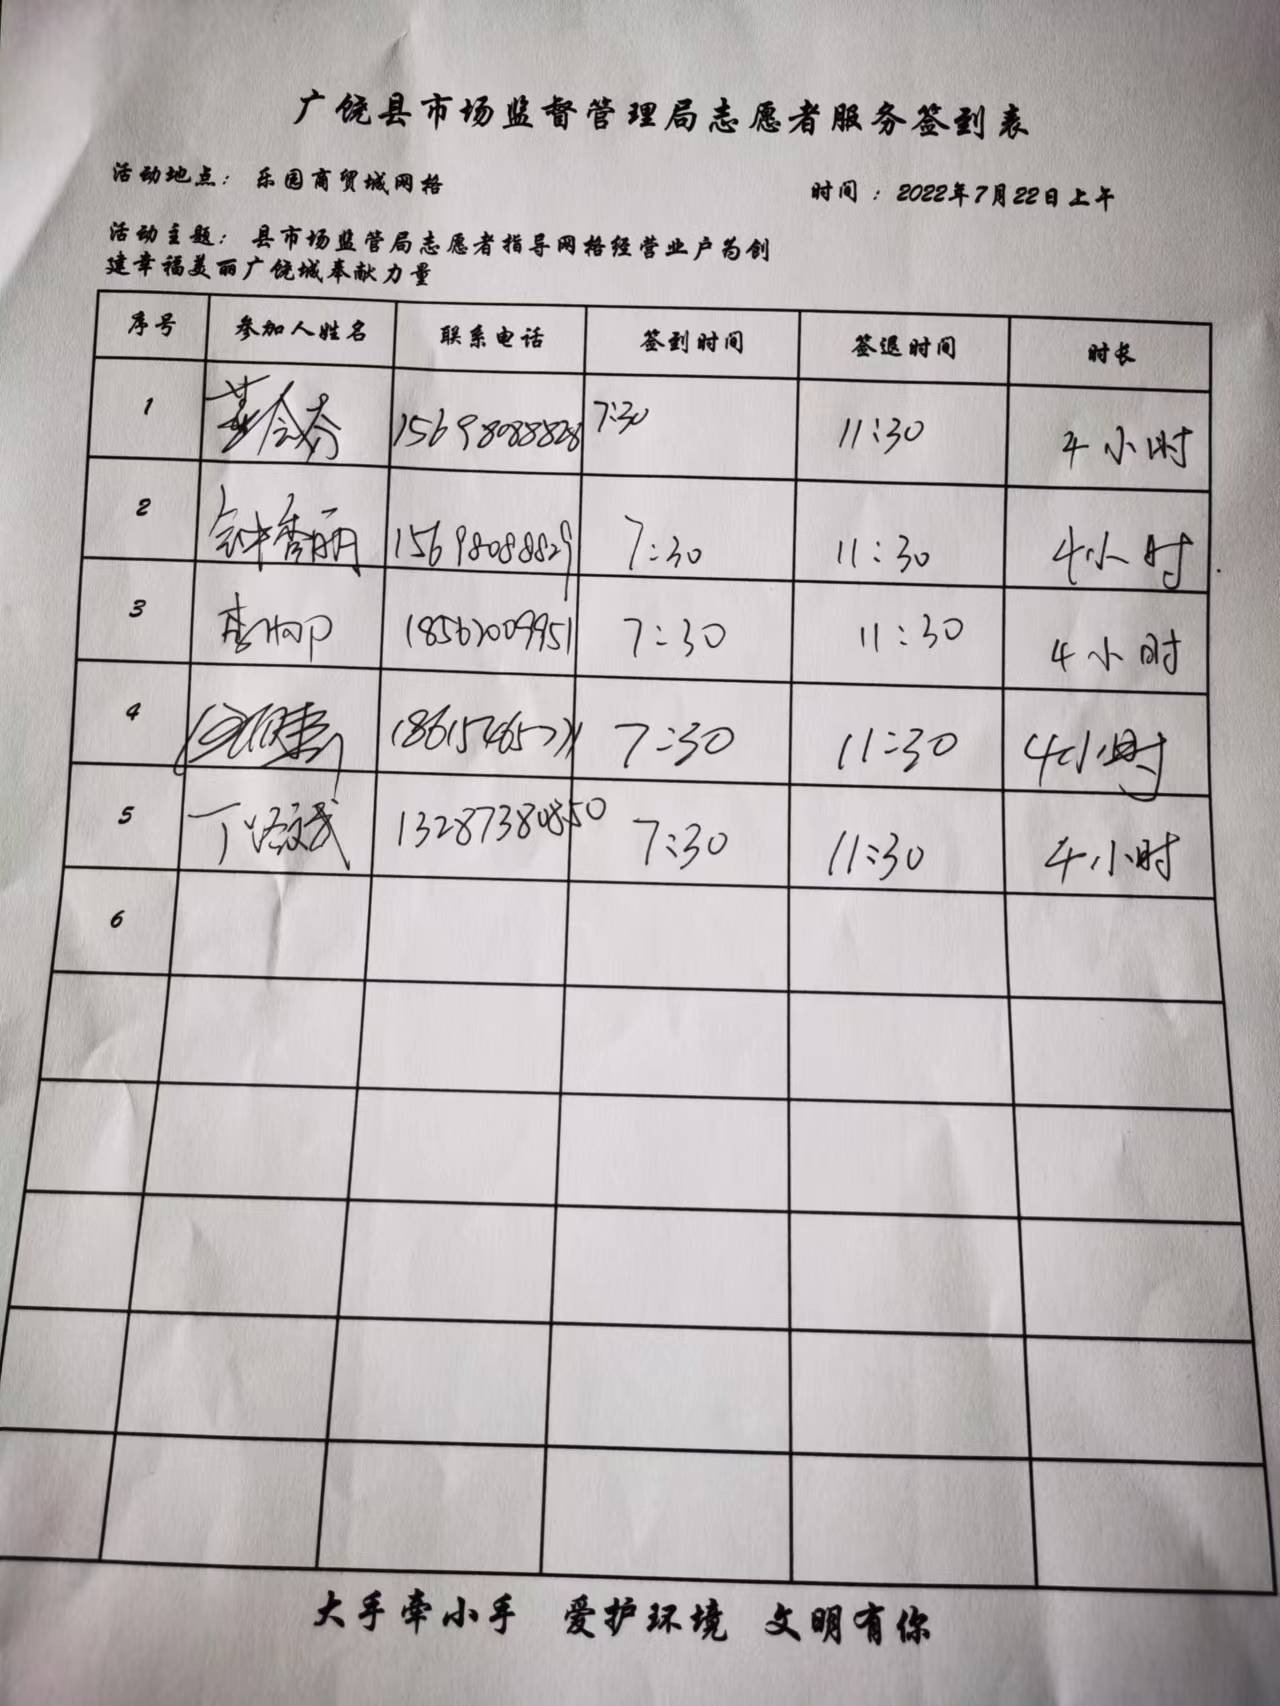 广饶县市场监督管理局志愿者服务签到表
活动地点： 乐园商贸城网格
时间 ：2022年7月22日上午
活动主题： 县市场监管局志愿者指导网格经营业户为创
建幸福美丽广饶城奉献力量
序号 参加人姓名 联系电话 签到时间 签退时间 时长
1 15698088828 7:30 11:30 4小时
2 钟秀丽 15698088829 7:30 11:30 4小时
3 7:30 11:30 4小时
4 7:30 11:30 4小时
5 丁 13287380850 7:30 11:30 4小时
6
大手牵小手 爱护环境 文明有你